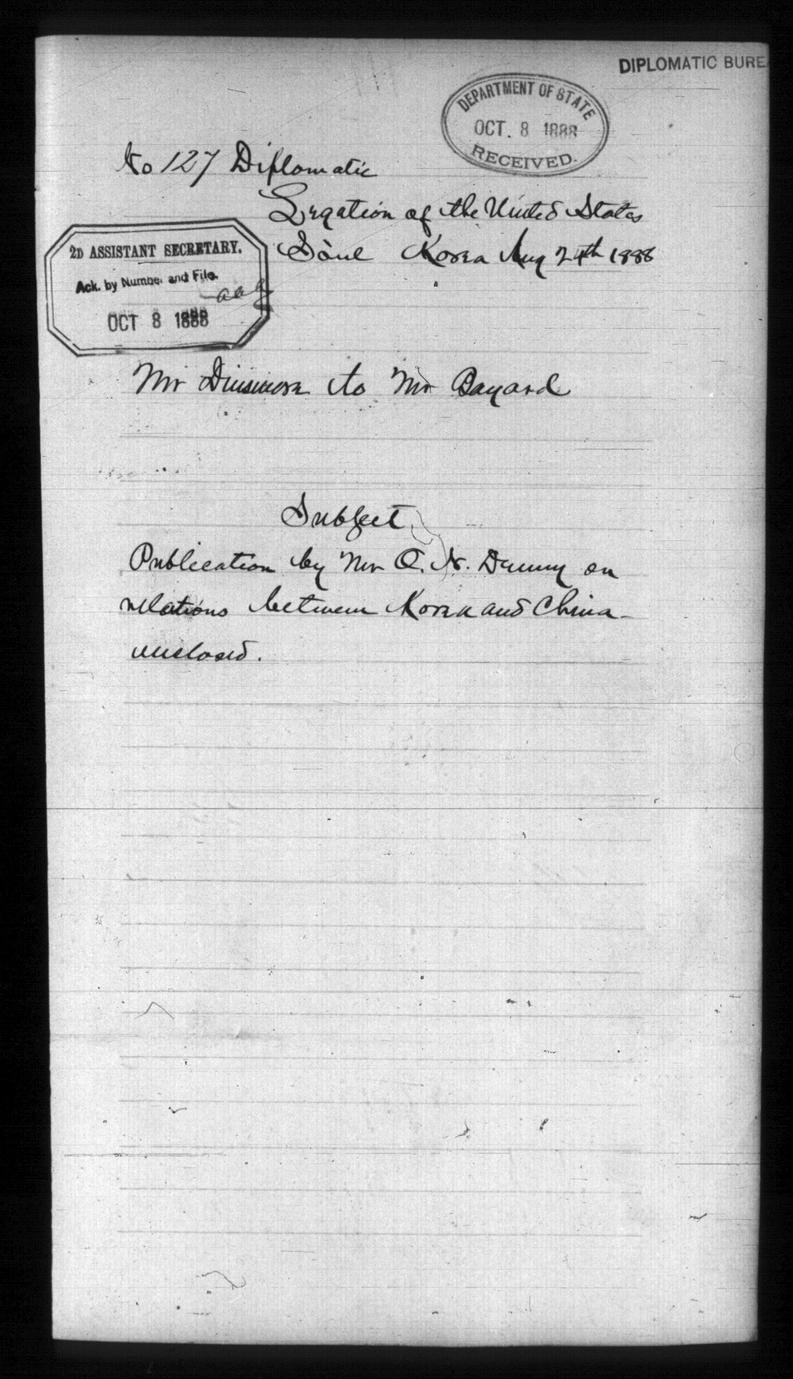 DIPLOMATIC BUREA
DEPARTMENT OF STATE
OCT. 8 1888
RECEIVED.
No 127 Diplomatic
Legation of the United States
Söul Korea Aug 24th 1888
2D ASSISTANT SECRETARY.
Ack. by Number and File.
OCT 8 1888
Mr Dinsmore to Mr Bayard
Subject
Publication by Mr O. N. Denny on
relations between Korea and China
enclosed.